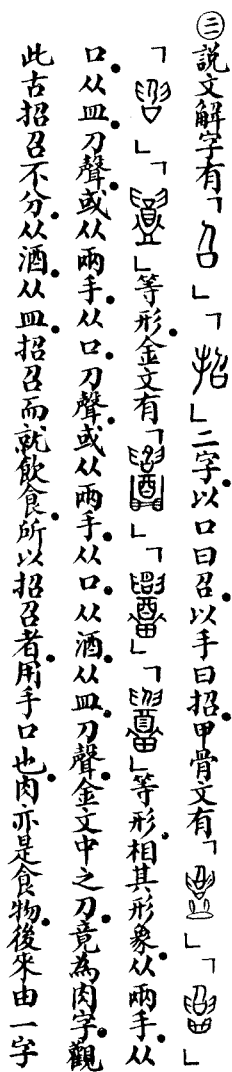 ㊂說文解字有「召」「招」二字。以口曰召。以手曰招。甲骨文有「」「」
「」「」等形。金文有「」「」「」等形。相其形象。从兩手。从
口。从皿。刀聲。或从兩手。从口。刀聲。或从兩手。从口。从酒。从皿。刀聲。金文中之刀。竟為肉字。觀
此古招召不分。从酒。从皿。招召而就飲食。所以招召者。用手口也。肉亦是食物。後來由一字